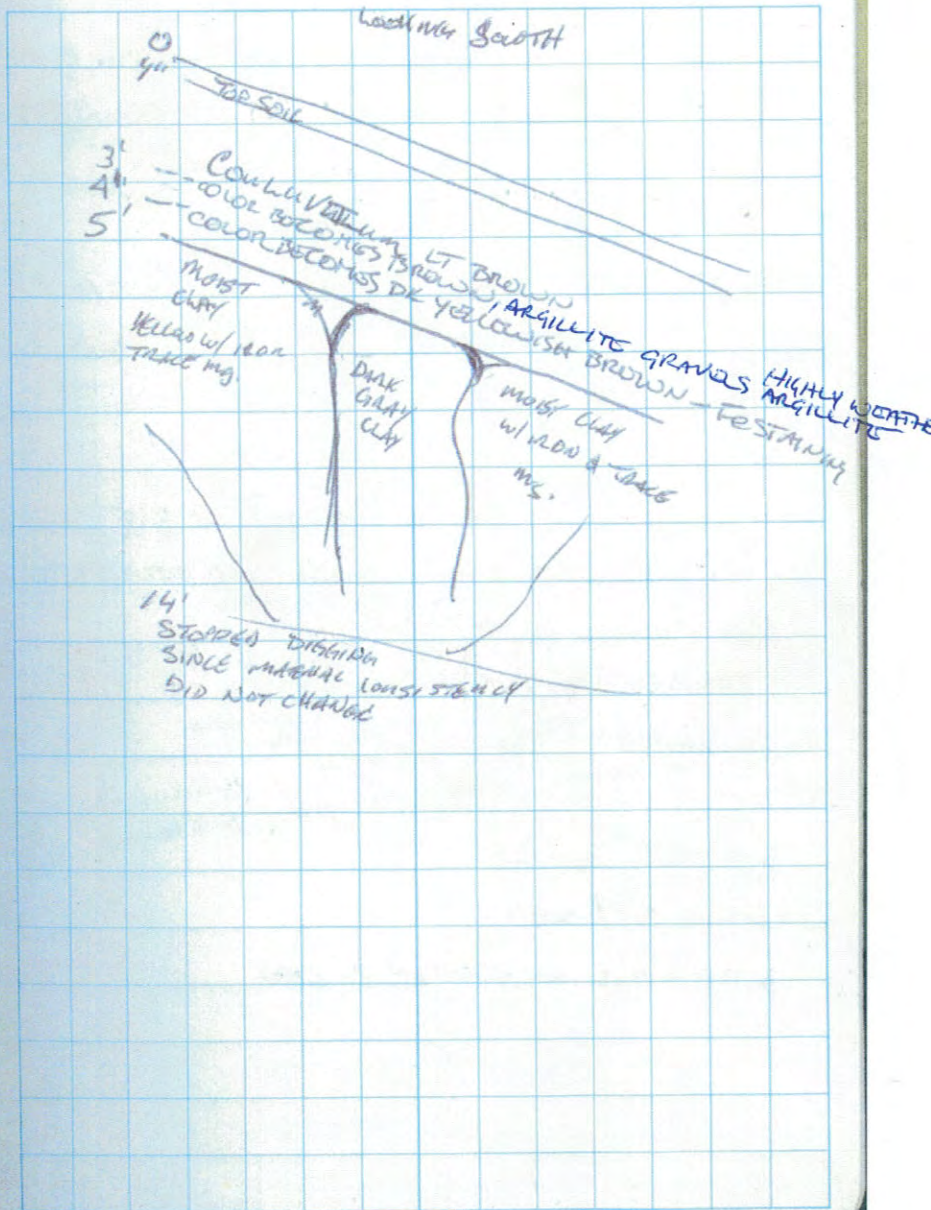 Looking South
0
4"
TOP SOIL
3' COLLUVIUM LT BROWN
4' COLOR BECOMES BROWN, ARGILLITE GRAVELS HIGHLY WEATHE
ARGILLITE
5' COLOR BECOMES DK YELLOWISH BROWN - Fe STAINING
MOIST
CLAY
YELLOW w/ IRON
TRACE mg.
DARK
GRAY
CLAY
MOIST CLAY
w/ IRON & TRACE
mg.
14'
STOPPED DIGGING
SINCE MATERIAL CONSISTENCY
DID NOT CHANGE